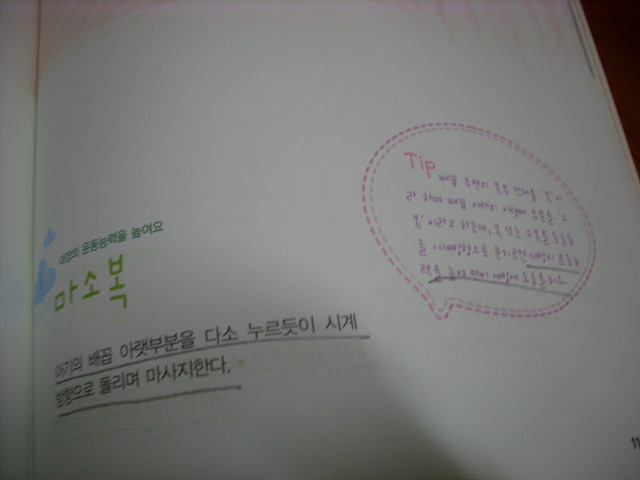 대장의 운동능력을 높여요
마소복
아기의 배꼽 아랫부분을 다소 누르듯이 시계
방향으로 돌리며 마사지한다.
Tip
배꼽 주변의 복부 전체를 '복'이
라 하며 배꼽 아래의 아랫배 부분을 '소
복'이라고 하는데, 복 또는 소복을 둥글둥
글 시계방향으로 문지르면 대장의 운동능
력을 높여 변비 예방에 도움을 줘요
11